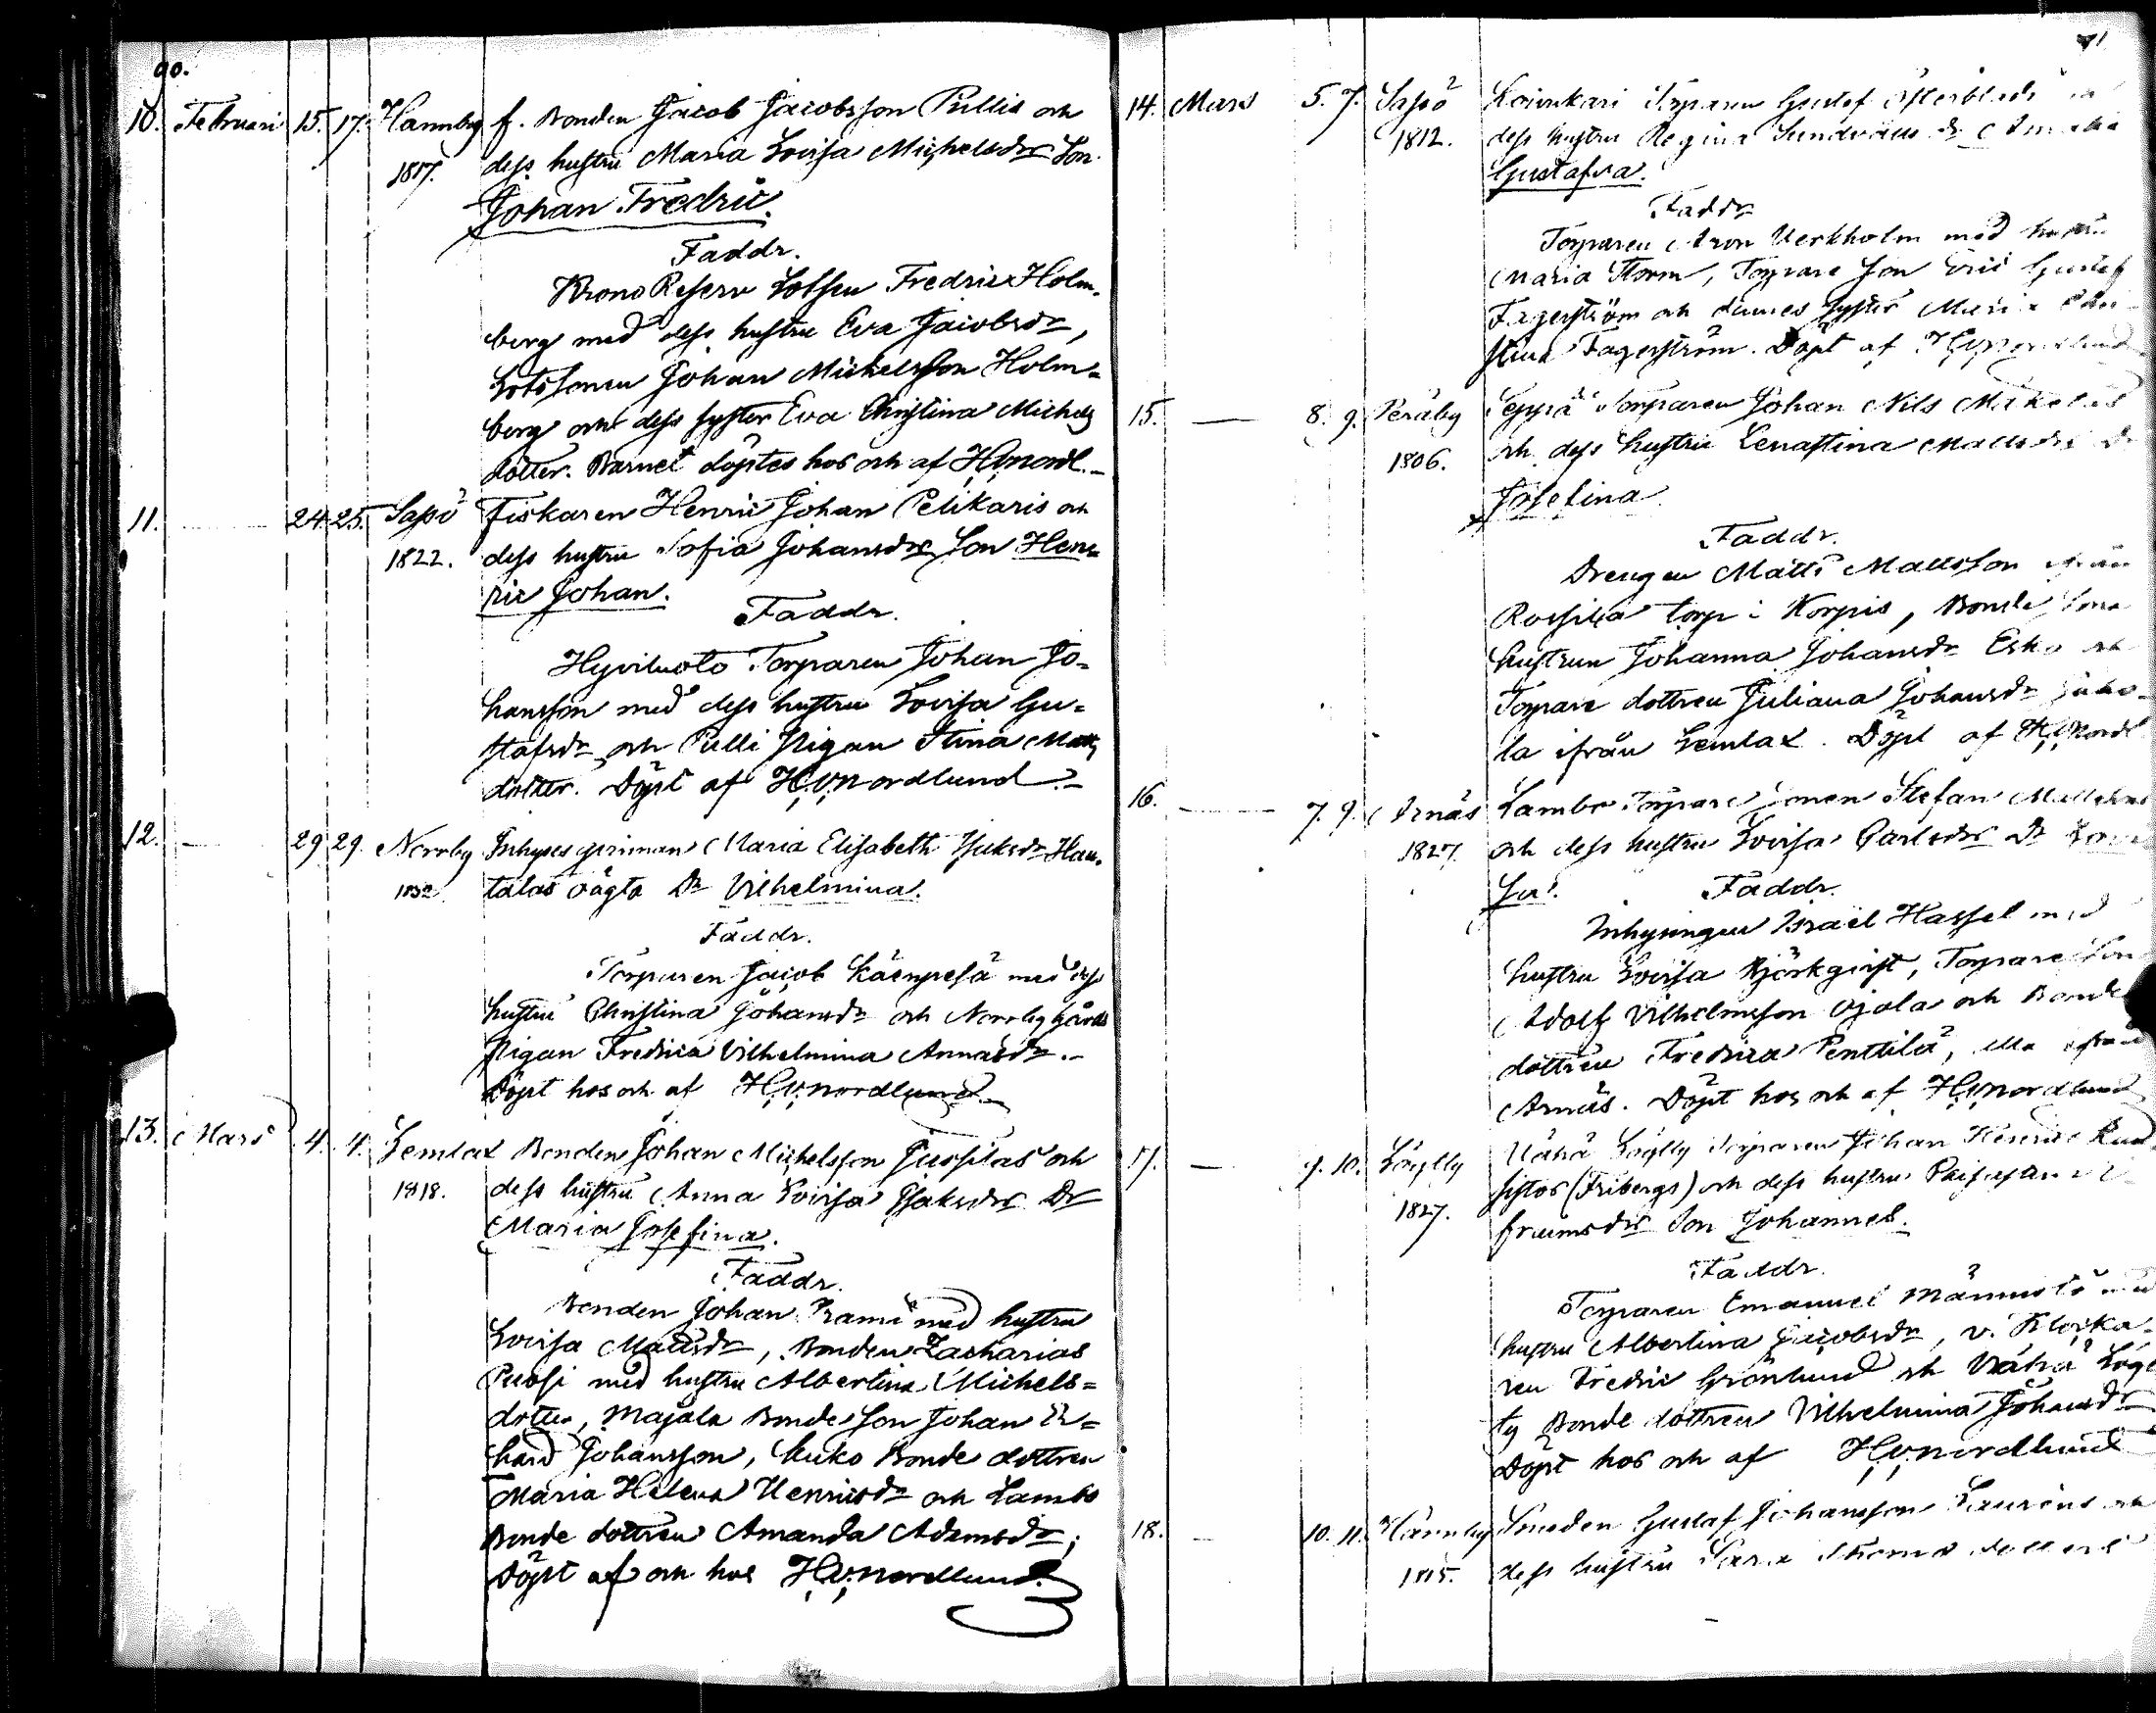 90.
10. Februari 15. 17. Hannby f. Bonden Jacob Jacobsson Pullis och
1817. dess hustru Maria Lovisa Michelsdr Son
Johan Fredric.
Faddr.
Krono Reserv Lotsen Fredric Holm-
berg med dess hustru Eva Jacobsdr,
Lotssonen Johan Michelsson Holm-
berg och dess syster Eva Christina Michels
dotter. Barnet döptes hos och af H.v.nordl.
11. 24. 25. Sapö Fiskaren Henric Johan Pelikaris och
1822. dess hustru Sofia Johansdr Son Hen-
ric Johan.
Faddr.
Hyviluoto Torparen Johan Jo-
hansson med dess hustru Lovisa Gu-
stafsdr och Pulli Pigan Stina Matts
dotter. Döpt af H.v.nordlund.
12. 29 29. Norrby Inhyses qvinnan Maria Elisabeth Isaksdr Hau-
talas oägta Dr Vilhelmina.
Faddr.
Torparen Jacob Käenpesä med dess
hustru Christina Johansdr och Norrby gårds
Pigan Fredrica Vilhelmina Annasdr.
Döpt hos och af H.v.nordlund
13. Mars 4. 4. Lemlax Bonden Johan Michelsson Jussilas och
1818. dess hustru Anna Lovisa Isaksdr Dr
Maria Josefina.
Faddr.
Bonden Johan Rami med hustru
Lovisa Mattsdr, Bonden Zacharias
Puosi med hustru Albertina Michels-
dotter, Majala Bonde Son Johan
hard Johansson, Kuko Bonde dottren
Maria Helena Henricsdr och Lambo
Bonde dottren Amanda Adamsdr;
Döpt af och hos H.v.nordlund.
91
14. Mars 5. 7. Sapö Koivukari Torparen Gustaf Österblads
1812. dess hustru Regina Sundvalls dr Amalia
Gustafva.
Faddr
Torparen Aron Verkholm med hustru
Maria Storm, Torpare Son Eric Gustaf
Fagerström och dennes syster Maria
stina Fagerström. Döpt af H.v.nordlund
15. 8. 9. Peräby Seppä Torparen Johan Nils Mäkeläs
1806. och dess hustru Lenastina Mattsdr Dr
Josefina
Faddr.
Drengen Matts Mattsson ifrån
torp i Korpis, Bonde Sona
hustrun Johanna Johansdr Esko och
Torpare dottren Juliana Johansdr
la ifrån Lemlax. Döpt af H.v.nordl
16. 7. 9. Arnäs Lambo Torpare Sonen Stefan Mattssons
1827. och dess hustru Lovisa Carlsdr Dr Lovi
sa.
Faddr.
Inhysingen Israel Hassel med
hustru Lovisa Björkqvist, Torpare Son
Adolf Vilhelmsson Ojala och Bonde
dottren Fredrica Penttilä, alla ifrån
Arnäs. Döpt hos och af H.v.nordlund
17. 9. 10. Löylly Vähä Löylly Torparen Johan Henric
1827. sistos (Fribergs) och dess hustru
fraimsdr Son Johannes.
Faddr.
Torparen Emanuel Männistö med
hustru Albertina Jacobsdr, v. Klocka-
ren Fredric Grönlund och Vähä Löyl
ly Bonde dottren Vilhelmina Johansdr
Döpt hos och af H.v.nordlund
18. 10. 11. Hannby Smeden Gustaf Johansson Lauréns och
1815. dess hustru Sara